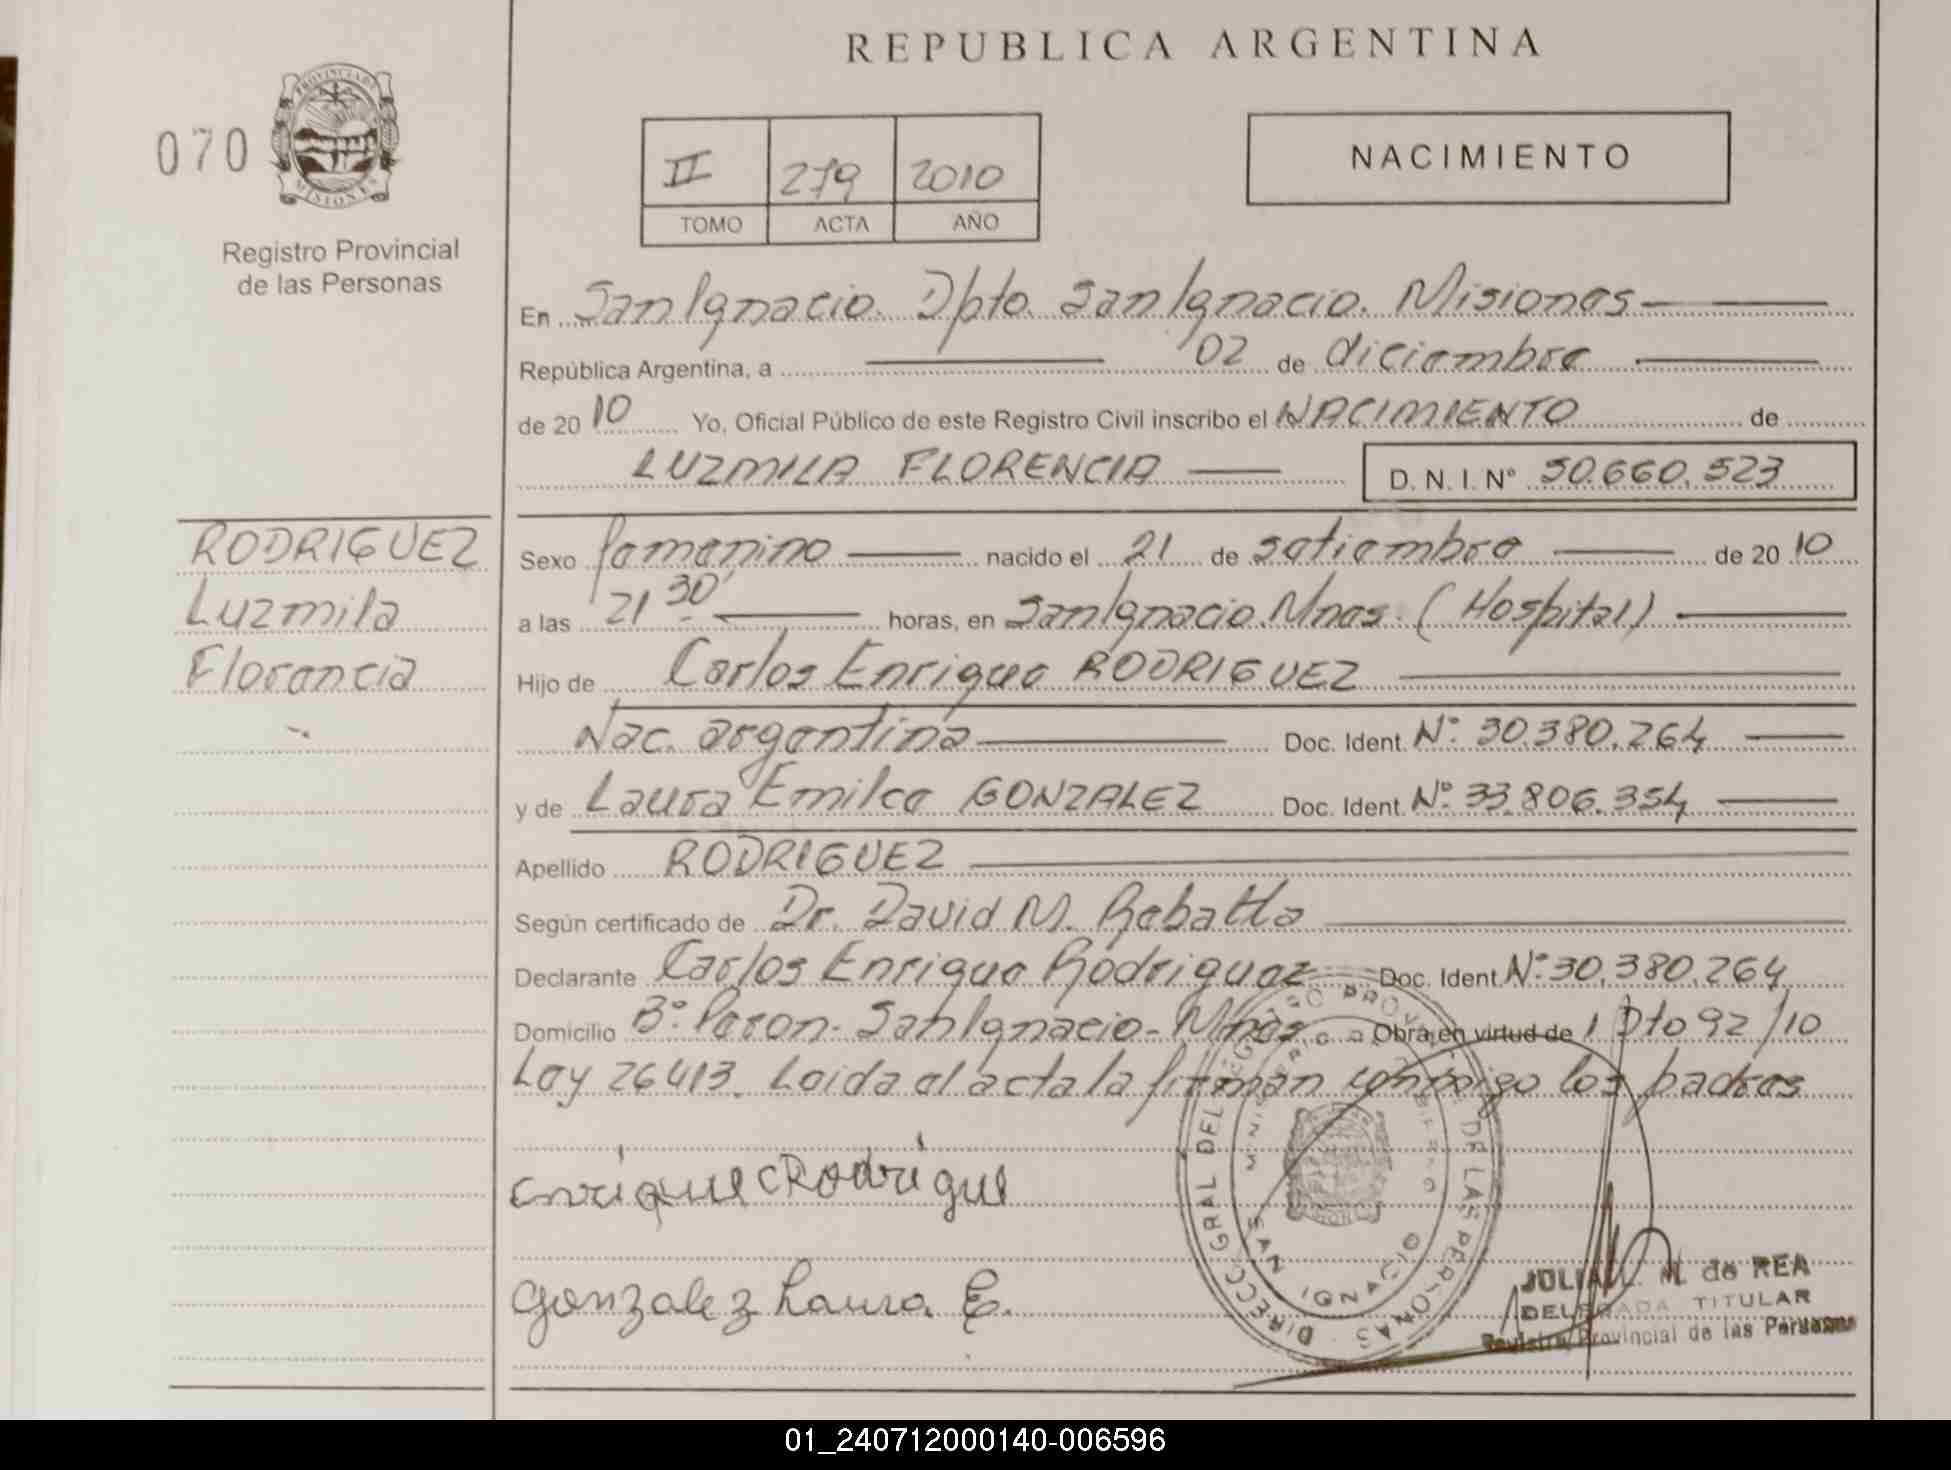 REPUBLICA ARGENTINA
070
PROVINCIA DE
MISIONES
Registro Provincial
de las Personas
II 279 2010
TOMO ACTA AÑO
NACIMIENTO
En San Ignacio. Dpto. San Ignacio. Misiones
República Argentina, a 02 de diciembre
de 20 10 Yo, Oficial Público de este Registro Civil inscribo el NACIMIENTO de
LUZMILA FLORENCIA D. N. I. Nº 50.660.523
RODRIGUEZ
Luzmila
Florencia
Sexo femenino nacido el 21 de setiembre de 20 10
a las 21 30' horas, en San Ignacio. Mnes. (Hospital)
Hijo de Carlos Enrique RODRIGUEZ
Nac. argentina Doc. Ident. Nº: 30.380.264
y de Laura Emilce GONZALEZ Doc. Ident. Nº: 33.806.354
Apellido RODRIGUEZ
Según certificado de Dr. David M.
Declarante Carlos Enrique Rodriguez Doc. Ident. Nº: 30.380.264
Domicilio Bº: Peron - San Ignacio - Mnes Obra en virtud de Dto 92/10
Ley 26413. Leida el acta la firman conmigo los padres
enrique c Rodrigue
gonzalez Laura E.
DIRECC GRAL DEL REGISTRO PROV. DE LAS PERSONAS
SAN IGNACIO
M. de REA
DELEGADA TITULAR
Registro Provincial de las Personas
01_240712000140-006596